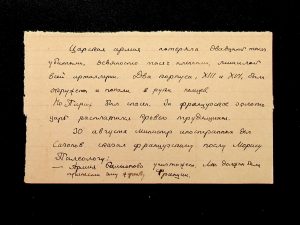 Царская армия потеряла двадцать тысяч
убитыми, девяносто тысяч пленными, лишилась
всей артиллерии. Два корпуса, XIII и XV, были
окружены и попали в руки немцев.
Но Париж был спасен. За французское золото
царь расплатился кровью
30 августа Министр иностранных дел
Сазонов сказал французскому послу Морису
Палеологу:
— Армия Самсонова уничтожена. Мы должны были
принести эту жертву Франции.